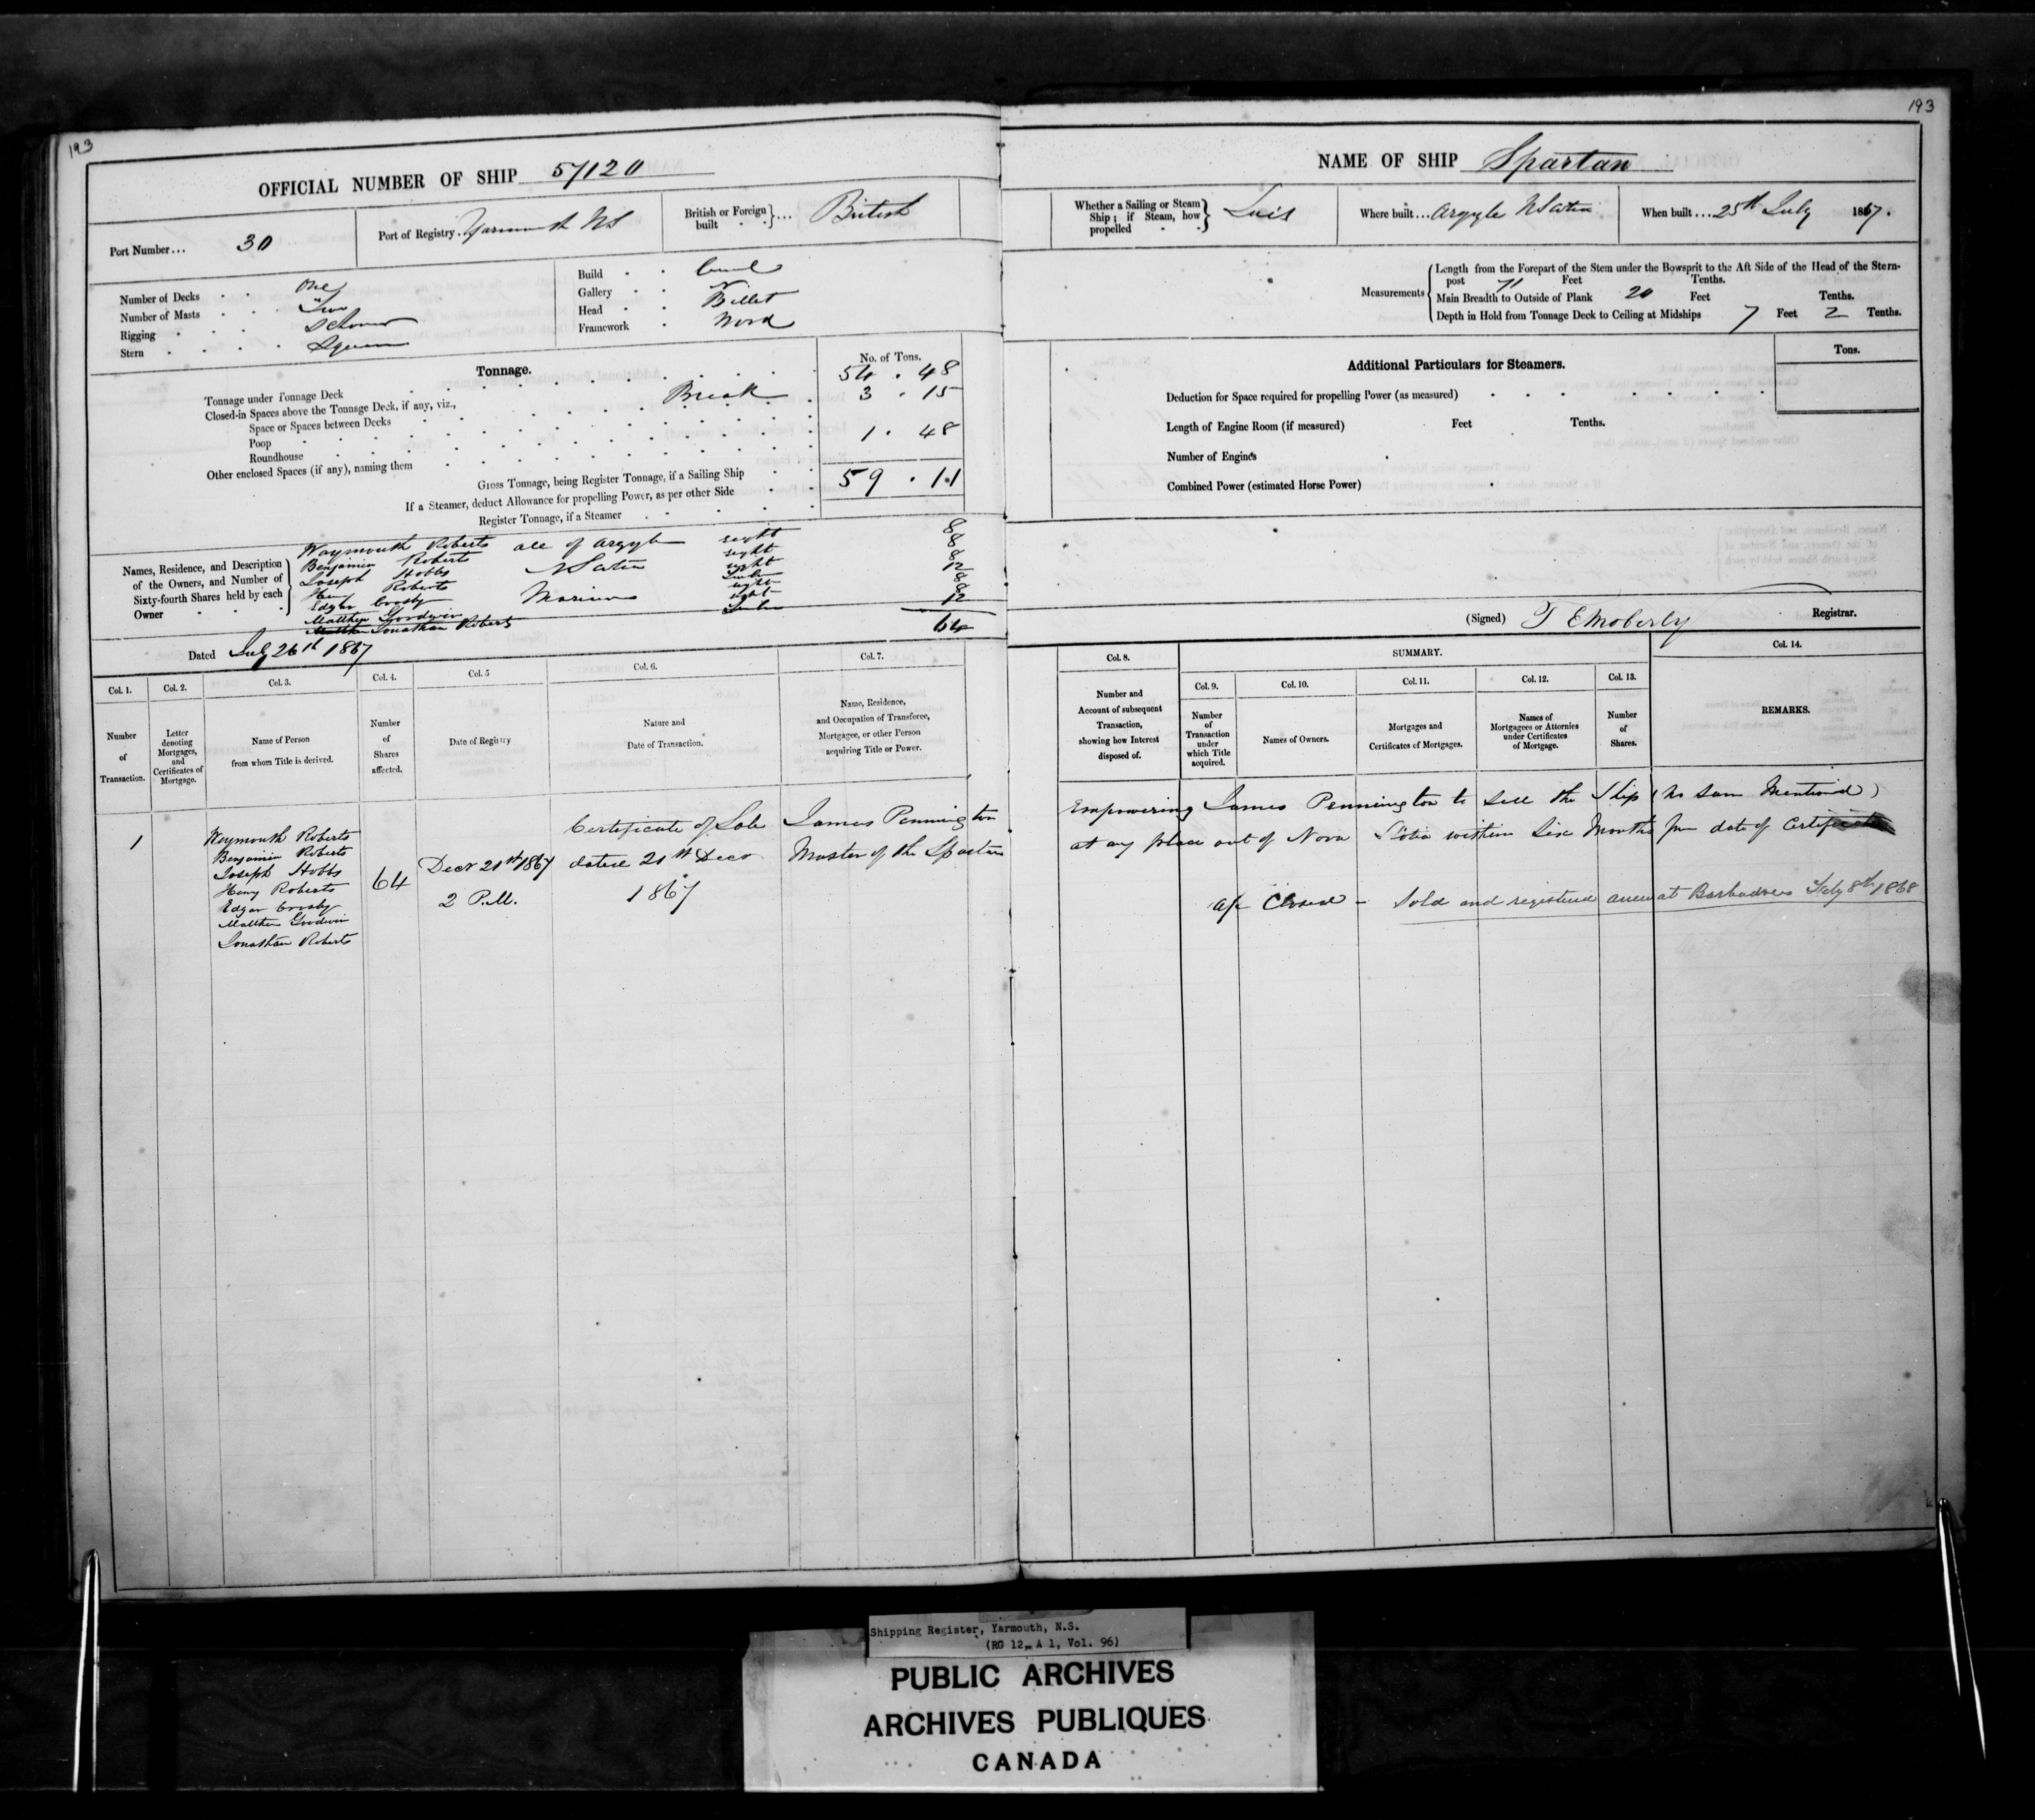 193
OFFICIAL NUMBER OF SHIP 57120
Port Number... 30
Port of Registry. Yarmouth NS
British or Foreign built ... British
Number of Decks One
Number of Masts Two
Rigging Schooner
Stern Square
Build
Gallery
Head Billet
Framework Wood
Tonnage.
No. of Tons.
Tonnage under Tonnage Deck 54 . 48
Closed-in Spaces above the Tonnage Deck, if any, viz., Break 3 . 15
Space or Spaces between Decks
Poop 1 . 48
Roundhouse
Other enclosed Spaces (if any), naming them
Gross Tonnage, being Register Tonnage, if a Sailing Ship 59 . 11
If a Steamer, deduct Allowance for propelling Power, as per other Side
Register Tonnage, if a Steamer
Names, Residence, and Description of the Owners, and Number of Sixty-fourth Shares held by each Owner
Waymouth Roberts all of Argyle eight 8
Benjamin Roberts eight 8
Joseph Hobbs N Scotia eight 8
Henry Roberts twelve 12
Edgar Crosby Mariners eight 8
Matthew Goodwin eight 8
Matthew Jonathan Roberts twelve 12
64
Dated July 26th 1867
Col. 1.
Number of Transaction.
Col. 2.
Letter denoting Mortgages, and Certificates of Mortgage.
Col. 3.
Name of Person from whom Title is derived.
Col. 4.
Number of Shares affected.
Col. 5
Date of Registry
Col. 6.
Nature and Date of Transaction.
Col. 7.
Name, Residence, and Occupation of Transferee, Mortgagee, or other Person acquiring Title or Power.
1
Waymouth Roberts
Benjamin Roberts
Joseph Hobbs
Henry Roberts
Edgar Crosby
Matthew Goodwin
Jonathan Roberts
64
Decr 21st 1867
2 P.M.
Certificate of Sale
dated 21st Decr
1867
James Pennington
Master of the Spartan
193
NAME OF SHIP Spartan
Whether a Sailing or Steam Ship; if Steam, how propelled
Where built... Argyle N Scotia
When built... 25th July 1867.
Measurements
Length from the Forepart of the Stem under the Bowsprit to the Aft Side of the Head of the Stern-
post 71 Feet Tenths.
Main Breadth to Outside of Plank 20 Feet Tenths.
Depth in Hold from Tonnage Deck to Ceiling at Midships 7 Feet 2 Tenths.
Additional Particulars for Steamers.
Tons.
Deduction for Space required for propelling Power (as measured)
Length of Engine Room (if measured) Feet Tenths.
Number of Engines
Combined Power (estimated Horse Power)
(Signed) T E Moberly Registrar.
Col. 8.
Number and Account of subsequent Transaction, showing how Interest disposed of.
SUMMARY.
Col. 9.
Number of Transaction under which Title acquired.
Col. 10.
Names of Owners.
Col. 11.
Mortgages and Certificates of Mortgages.
Col. 12.
Names of Mortgagees or Attornies under Certificates of Mortgage.
Col. 13.
Number of Shares.
Col. 14.
REMARKS.
Empowering James Pennington to sell the Ship (no sum Mentioned)
at any place out of Nova Scotia within Six Months from date of Certificate
a/c Closed - Sold and registered anew at Barbadoes July 8th 1868
Shipping Register, Yarmouth, N.S.
(RG 12, A 1, Vol. 96)
PUBLIC ARCHIVES
ARCHIVES PUBLIQUES
CANADA